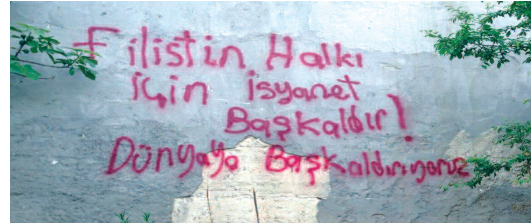 Filistin Halkı
için isyanet
Başkaldır!
Dünyaya Başkaldırıyoruz